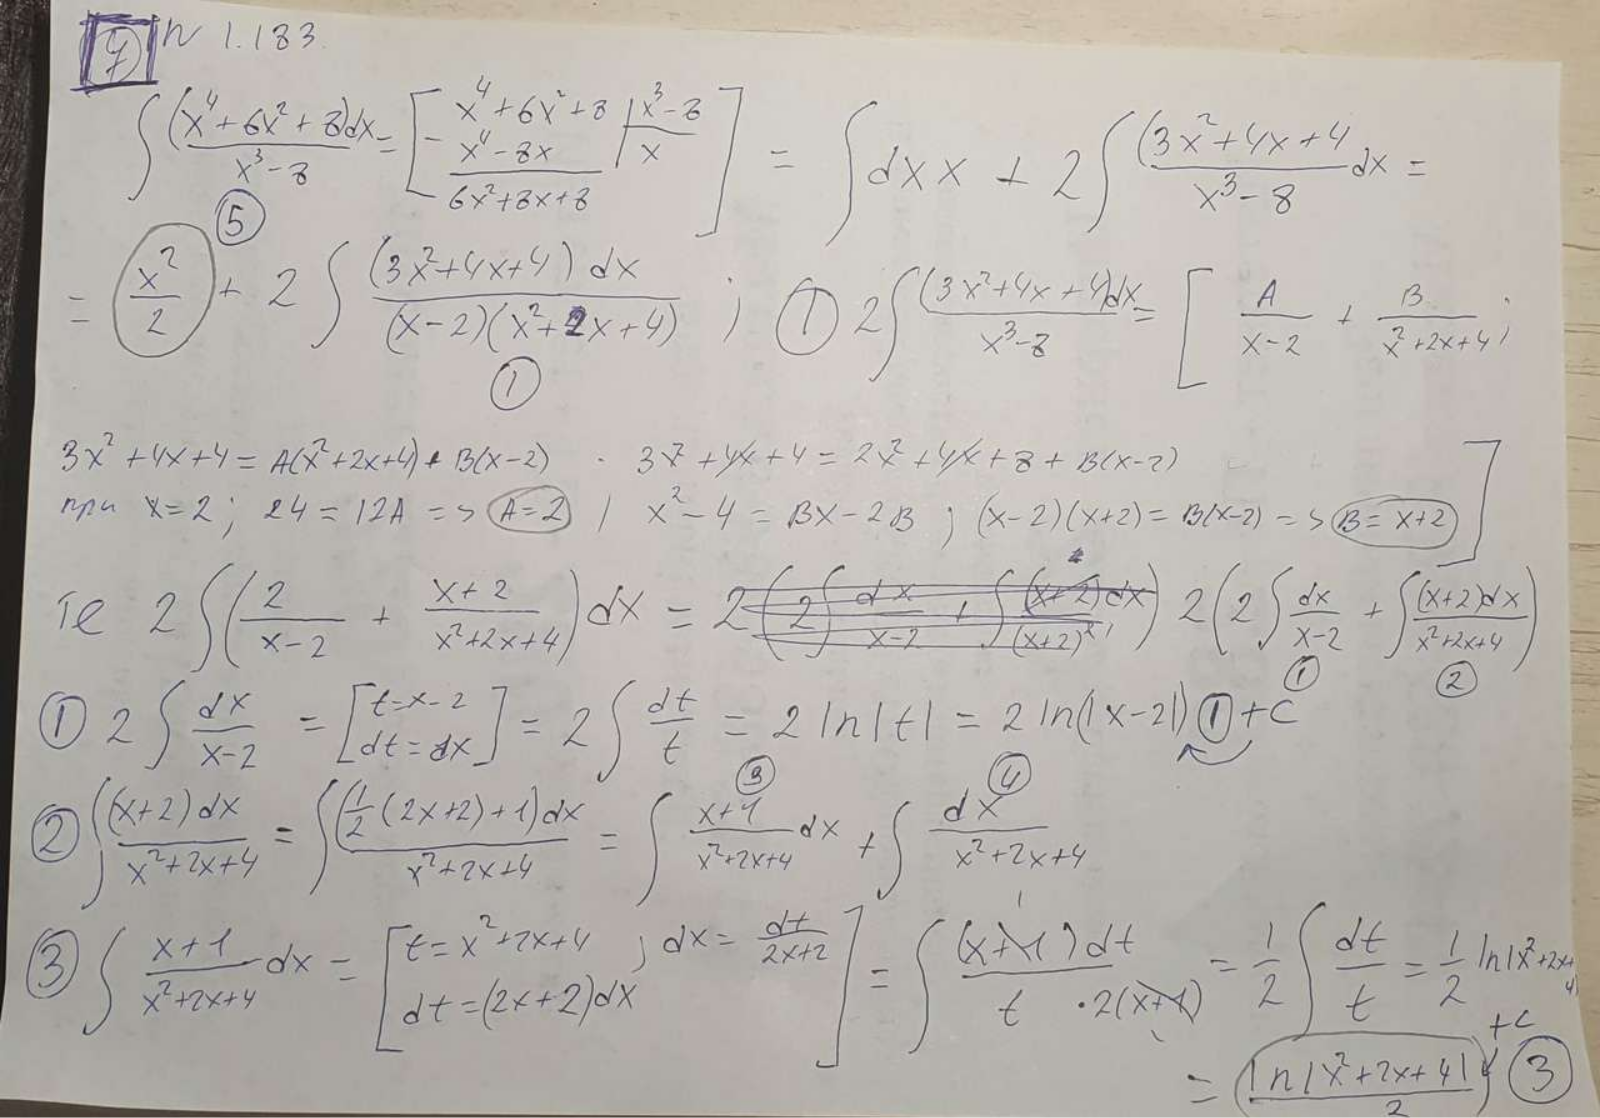 7 n 1.183.
∫ (x⁴+6x²+8)dx / (x³-8) = [ x⁴+6x²+8 | x³-8 ; - x⁴-8x | x ; 6x²+8x+8 ] = ∫ dx x + 2 ∫ (3x²+4x+4 / (x³-8) dx =
= ⑤ x²/2 + 2 ∫ (3x²+4x+4) dx / (x-2)(x²+2x+4) ① ; ① 2 ∫ (3x²+4x+4)dx / (x³-8) = [ A/(x-2) + B/(x²+2x+4) ;
3x²+4x+4 = A(x²+2x+4) + B(x-2) · 3x²+4x+4 = 2x²+4x+8+B(x-2)
при x=2; 24 = 12A => A=2 | x²-4 = Bx-2B ; (x-2)(x+2) = B(x-2) => B = x+2 ]
Те 2 ∫ ( 2/(x-2) + (x+2)/(x²+2x+4) ) dx = 2 ( 2 ∫ dx/(x-2) + ∫ (x+2)dx/(x+2)² ) 2 ( 2 ∫ dx/(x-2) ① + ∫ (x+2)dx/(x²+2x+4) ② )
① 2 ∫ dx/(x-2) = [ t=x-2 ; dt=dx ] = 2 ∫ dt/t = 2 ln|t| = 2 ln(|x-2|) ① + C
② ∫ (x+2)dx/(x²+2x+4) = ∫ (1/2 (2x+2)+1)dx/(x²+2x+4) = ③ ∫ (x+1)/(x²+2x+4) dx + ④ ∫ dx/(x²+2x+4)
③ ∫ (x+1)/(x²+2x+4) dx = [ t=x²+2x+4 ; dx = dt/(2x+2) ; dt=(2x+2)dx ] = ∫ (x+1)dt / t·2(x+1) = 1/2 ∫ dt/t = 1/2 ln|x²+2x+4|
+C
= ln|x²+2x+4| / 2 ③